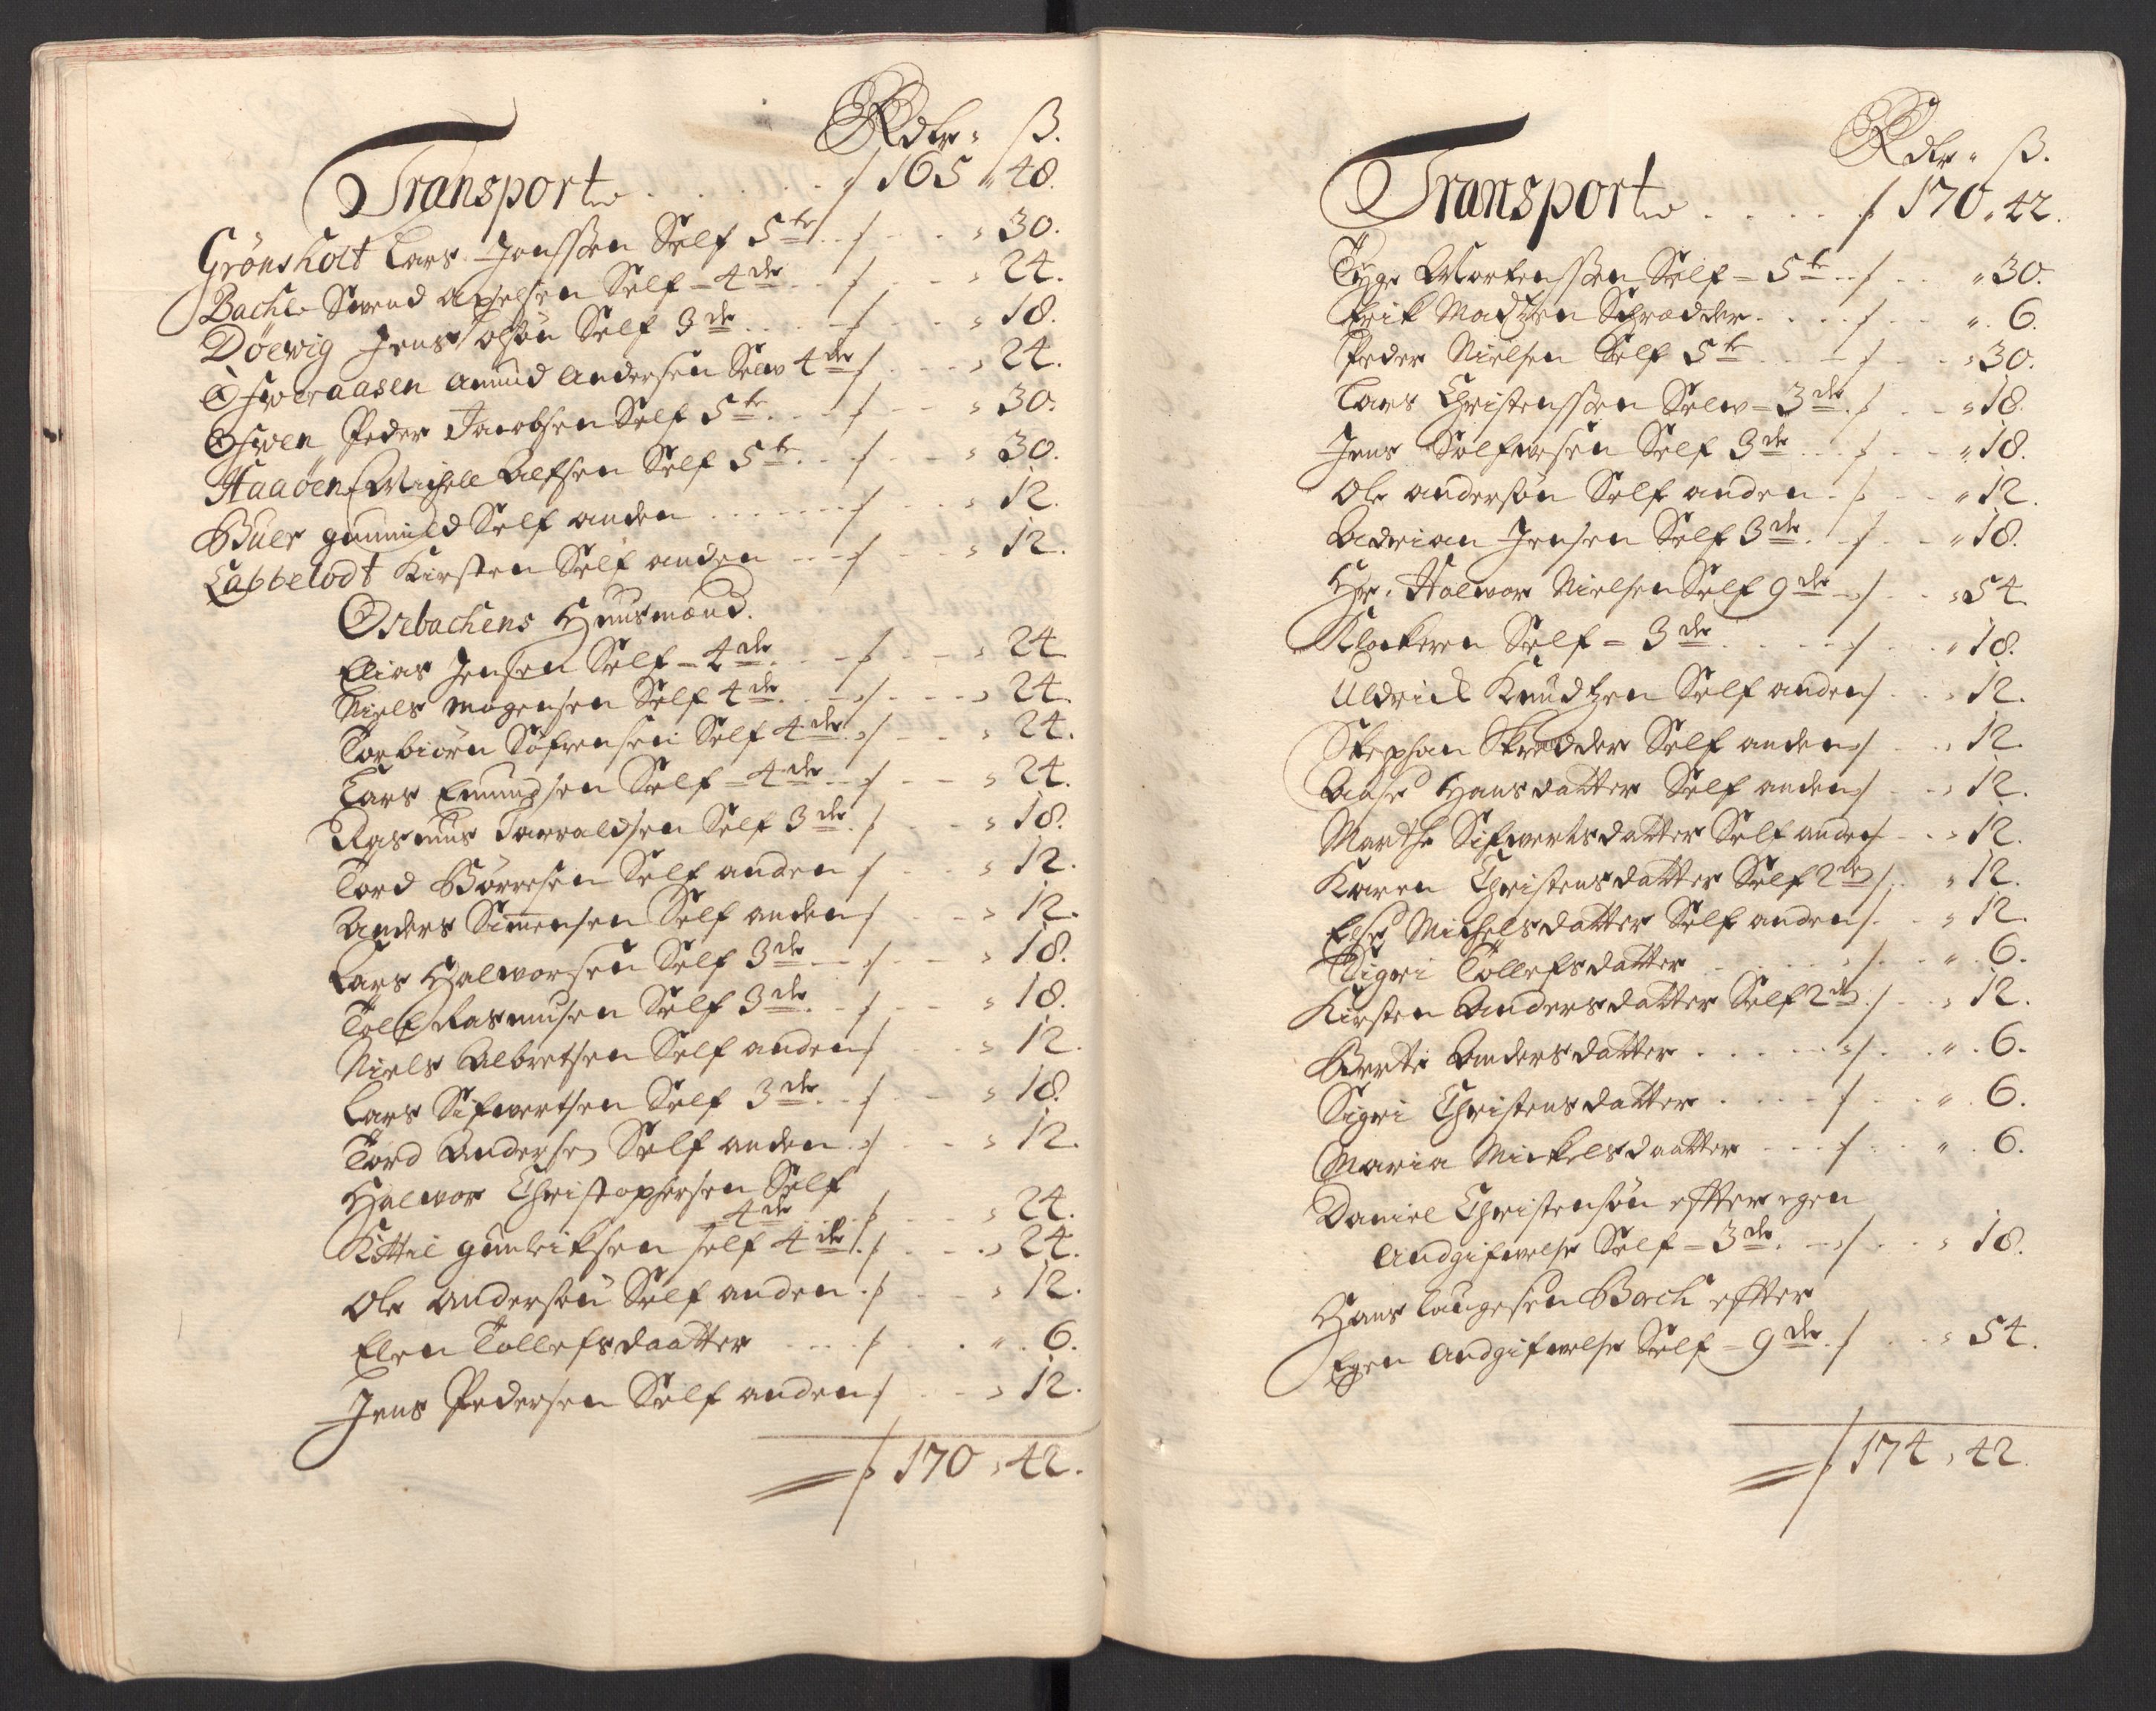 Rdlr. ß.
Transport . . . . . . 165 " 48.
Grönsholt Lars Jonssen Self 5te . . . 30.
Bache Swend Axelsen Self - 4de . . . 24.
Döewig Jens Olsön Self 3de . . . 18.
Øfweraasen Amund Andersen Selw 4de . . . 24.
Ofwen Peder Jacobsen Self 5te . . . 30.
Haaöen Michell Alfsen Self 5te . . . 30.
Buer Gunnild Self anden . . . 12.
Labbelodt Kirsten Self anden . . . 12.
Osebachens Huusmænd.
Elias Jensen Self - 4de . . . 24
Niels Mogensen Self 4de . . . 24.
Torbiörn Söfrensen Self 4de . . . 24.
Lars Emundsen Self - 4de . . . 24.
Rasmus Tarraldsen Self 3de . . . 18.
Tord Börresen Self anden . . . 12.
Anders Simensen Self anden . . . 12.
Lars Halworsen Self 3de . . . 18.
Tolf Rasmusen Self 3de . . . 18.
Niels Albretsen Self anden . . . 12.
Lars Sifwertsen Self 3de . . . 18.
Tord Andersen Self anden . . . 12.
Halwor Christophersen Self
4de . . . 24.
Kittil Gunleiksen self 4de . . . 24.
Ole Andersön Self anden . . . 12.
Elen Tollefsdaatter . . . 6.
Jens Pedersen Self anden . . . 12.
170 " 42.
Rdlr. ß.
Transport . . . . . 170 " 42.
Tyge Mortenssen Self = 5te . . . 30.
Erik Madtzen Schrædder . . . 6.
Peder Nielsen Self 5te . . . 30.
Lars Christenssen Selw = 3de . . . 18.
Jens Sølfwersen Self 3de . . . 18.
Ole Andersön Self anden . . . 12.
Adrian Jensen Self 3de . . . 18.
Hr. Halwor Nielsen Self 9de . . . 54
Klockeren Self = 3de . . . 18.
Uldrich Knudtzen Self anden . . . 12.
Stephan Skrædder Self anden . . . 12.
Aase Hansdatter Self anden . . . 12.
Marthe Sifwertsdatter Self anden . . . 12.
Karen Christensdatter Self 2de . . . 12.
Else Michelsdatter Self anden . . . 12.
Sigri Tollefsdatter . . . 6.
Kirsten Andersdatter Self 2de . . . 12.
Berte Andersdatter . . . 6.
Sigri Christensdatter . . . 6.
Maria Mickelsdaatter . . . 6.
Daniel Christensön effter egen
Andgifwelse Self = 3de . . . 18.
Hans Laugesen Bach effter
Egen Andgifwelse Self = 9de . . . 54.
174 " 42.